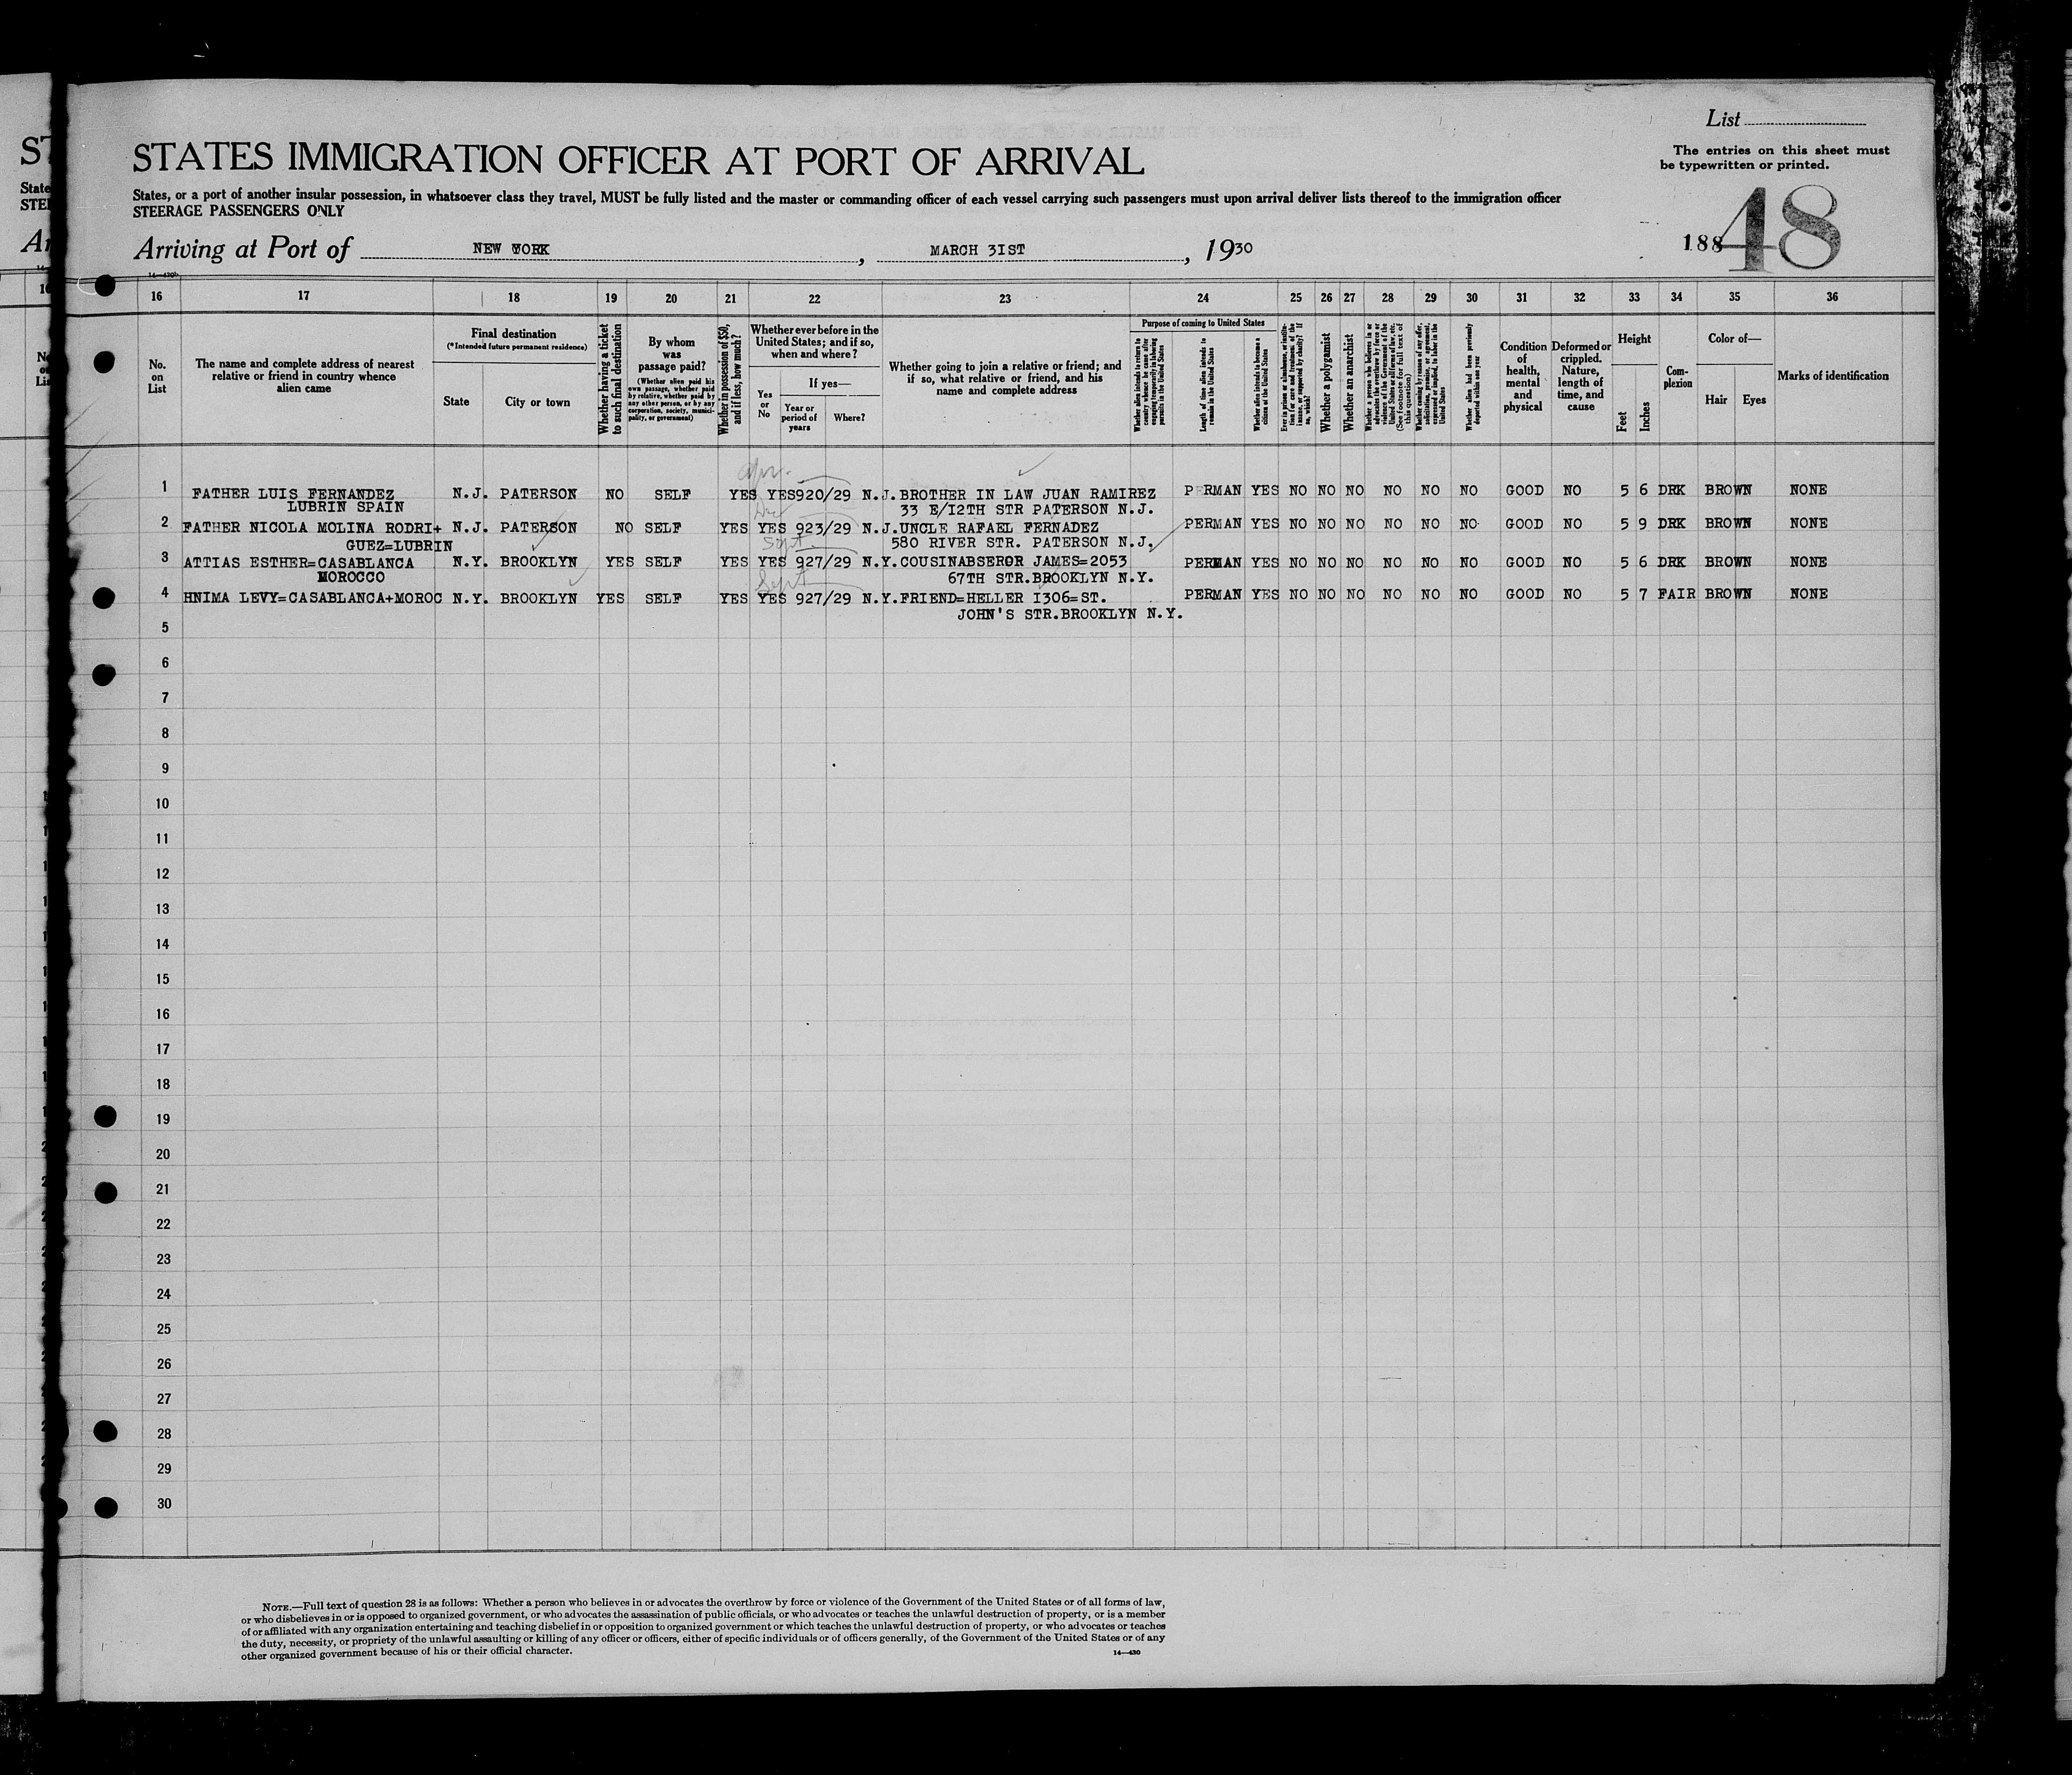 List
The entries on this sheet must
be typewritten or printed.
STATES IMMIGRATION OFFICER AT PORT OF ARRIVAL
States, or a port of another insular possession, in whatsoever class they travel, MUST be fully listed and the master or commanding officer of each vessel carrying such passengers must upon arrival deliver lists thereof to the immigration officer
STEERAGE PASSENGERS ONLY
188 48
Arriving at Port of NEW YORK, MARCH 3IST, 1930
16 17 18 19 20 21 22 23 24 25 26 27 28 29 30 31 32 33 34 35 36
No. on List
The name and complete address of nearest relative or friend in country whence alien came
Final destination
(*Intended future permanent residence)
State
City or town
Whether having a ticket to such final destination
By whom was passage paid?
(Whether alien paid his own passage, whether paid by relative, whether paid by any other person, or by any corporation, society, municipality, or government)
Whether in possession of $50, and if less, how much?
Whether ever before in the United States; and if so, when and where?
Yes or No
If yes—
Year or period of years
Where?
Whether going to join a relative or friend; and if so, what relative or friend, and his name and complete address
Purpose of coming to United States
Whether alien intends to return to country whence he came after engaging temporarily in laboring pursuits in the United States
Length of time alien intends to remain in the United States
Whether alien intends to become a citizen of the United States
Ever in prison or almshouse, or institution for care and treatment of the insane, or supported by charity? If so, which?
Whether a polygamist
Whether an anarchist
Whether a person who believes in or advocates the overthrow by force or violence of the Government of the United States or all forms of law, etc. (See footnote for full text of this question)
Whether coming by reason of any offer, solicitation, promise, or agreement, expressed or implied, to labor in the United States
Whether alien had been previously deported within one year
Condition of health, mental and physical
Deformed or crippled. Nature, length of time, and cause
Height
Feet
Inches
Complexion
Color of—
Hair
Eyes
Marks of identification
apr.
1 FATHER LUIS FERNANDEZ N.J. PATERSON NO SELF YES YES 920/29 N.J. BROTHER IN LAW JUAN RAMIREZ PERMAN YES NO NO NO NO NO NO GOOD NO 5 6 DRK BROWN NONE
LUBRIN SPAIN 33 E/I2TH STR PATERSON N.J.
2 FATHER NICOLA MOLINA RODRI+ N.J. PATERSON NO SELF YES YES 923/29 N.J. UNCLE RAFAEL FERNADEZ PERMAN YES NO NO NO NO NO NO GOOD NO 5 9 DRK BROWN NONE
GUEZ=LUBRIN Sept. 580 RIVER STR. PATERSON N.J.
3 ATTIAS ESTHER=CASABLANCA N.Y. BROOKLYN YES SELF YES YES 927/29 N.Y. COUSINABSEROR JAMES=2053 PERMAN YES NO NO NO NO NO NO GOOD NO 5 6 DRK BROWN NONE
MOROCCO Sept 67TH STR.BROOKLYN N.Y.
4 HNIMA LEVY=CASABLANCA+MOROC N.Y. BROOKLYN YES SELF YES YES 927/29 N.Y. FRIEND=HELLER I306=ST. PERMAN YES NO NO NO NO NO NO GOOD NO 5 7 FAIR BROWN NONE
JOHN'S STR.BROOKLYN N.Y.
5
6
7
8
9
10
11
12
13
14
15
16
17
18
19
20
21
22
23
24
25
26
27
28
29
30
NOTE.—Full text of question 28 is as follows: Whether a person who believes in or advocates the overthrow by force or violence of the Government of the United States or of all forms of law,
or who disbelieves in or is opposed to organized government, or who advocates the assassination of public officials, or who advocates or teaches the unlawful destruction of property, or is a member
of or affiliated with any organization entertaining and teaching disbelief in or opposition to organized government or which teaches the unlawful destruction of property, or who advocates or teaches
the duty, necessity, or propriety of the unlawful assaulting or killing of any officer or officers, either of specific individuals or of officers generally, of the Government of the United States or of any
other organized government because of his or their official character.
14—430